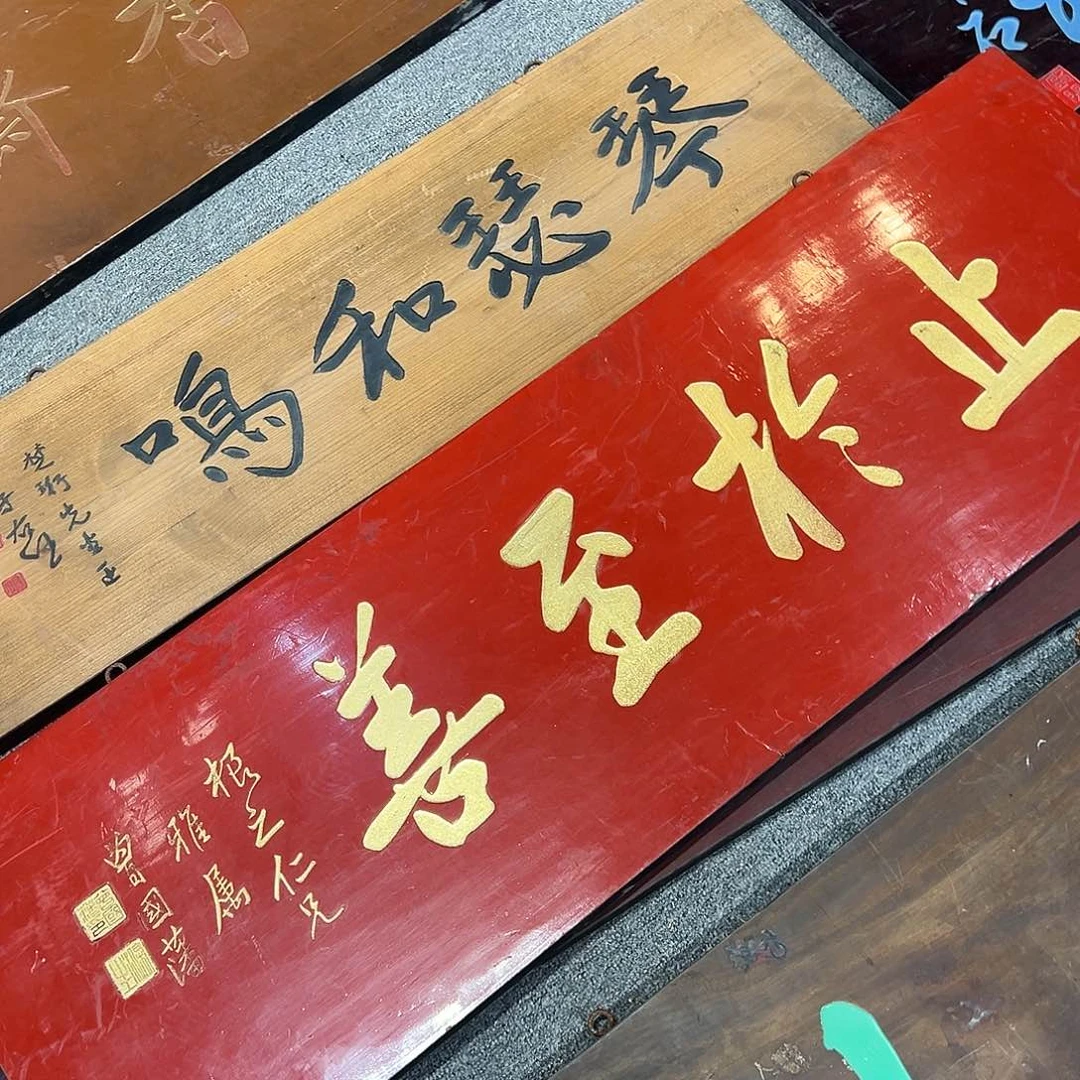 琴瑟和鳴
楚珩先生正
于右任
止於至善
根之仁兄
雅屬
曾國藩